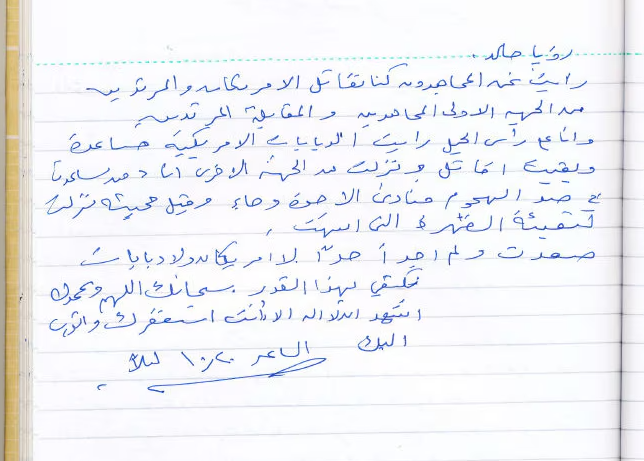 رؤيا خالد .
رايت نحن المجاهدون كنا نقاتل الامريكان والمرتدين
من الجهه الاولى المجاهدين والمقابلة المرتدين
وانا على رأس الجبل رايت الدبابات الامريكية صاعدة
وبقيت اقاتل ونزلت من الجهة الاخرى انادي من يساعدنا
في صد الهجوم منادى الاخوة وجاء وقبل مجيئه نزلت
لتعبئة الذخيرة التي انتهت .
صعدت ولم اجد أحداً لا امريكان ولا دبابات
نكتفي بهذا القدر سبحانك اللهم وبحمدك
اشهد ان لا اله الا أنت استغفرك واتوب
اليك الساعه ١٠:٢٠ ليلاً